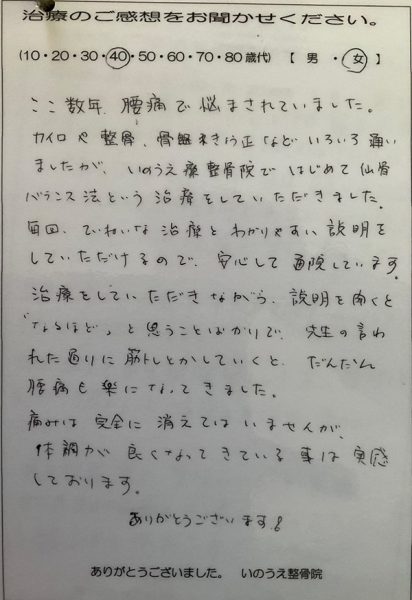 治療のご感想をお聞かせください。
(10・20・30・40・50・60・70・80歳代)【 男 ・ 女 】
ここ数年、腰痛で悩まされていました。
カイロや整骨、骨盤きょう正などいろいろ通い
ましたが、いのうえ療整骨院ではじめて仙骨
バランス法という治療をしていただきました。
毎回、ていねいな治療とわかりやすい説明を
していただけるので、安心して通院しています。
治療をしていただきながら、説明を聞くと
「なるほど」と思うことばかりで、先生の言わ
れた通りに筋トレとかしていくと、だんだん
腰痛も楽になってきました。
痛みは完全に消えてはいませんが、
体調が良くなってきている事は実感
しております。
ありがとうございます。
ありがとうございました。 いのうえ整骨院